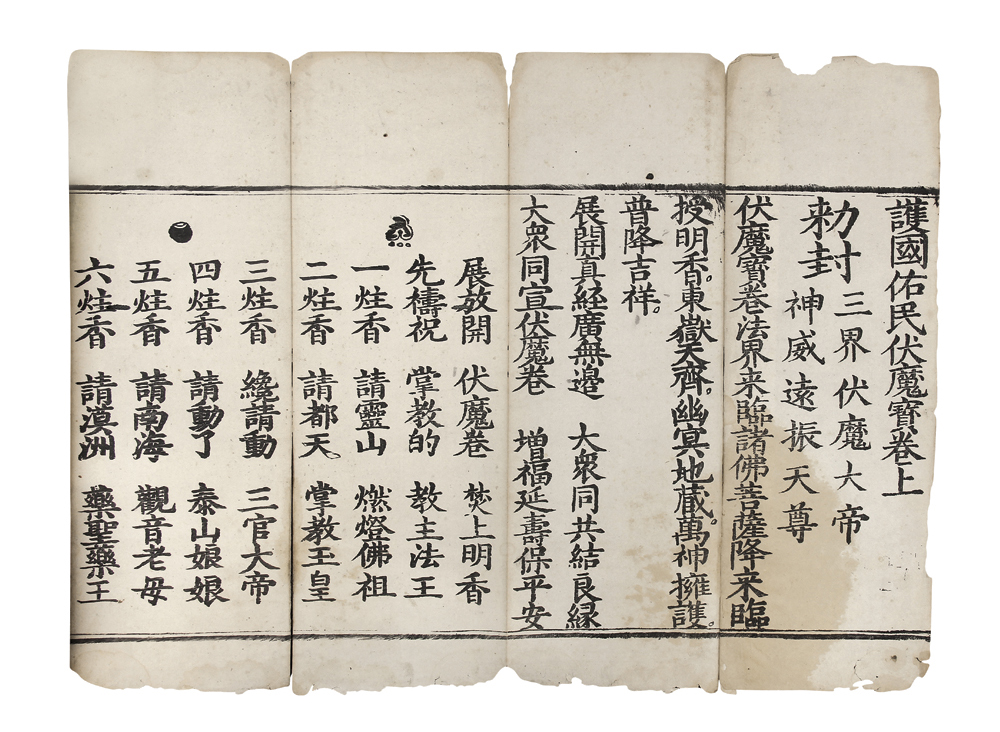 護國佑民伏魔寶卷上
勑封三界伏魔大帝
神威遠振天尊
伏魔寶卷法界来臨諸佛菩薩降来臨
授明香。東嶽天齊。幽冥地藏。萬神擁護。
普降吉祥。
展開真經廣無邊 大衆同共結良緣
大衆同宣伏魔卷 增福延壽保平安
展放開 伏魔卷 焚上明香
先禱祝 掌教的 教主法王
一炷香 請靈山 燃燈佛祖
二炷香 請都天 掌教玉皇
三炷香 纔請動 三官大帝
四炷香 請動了 泰山娘娘
五炷香 請南海 觀音老母
六炷香 請漠洲 藥聖藥王